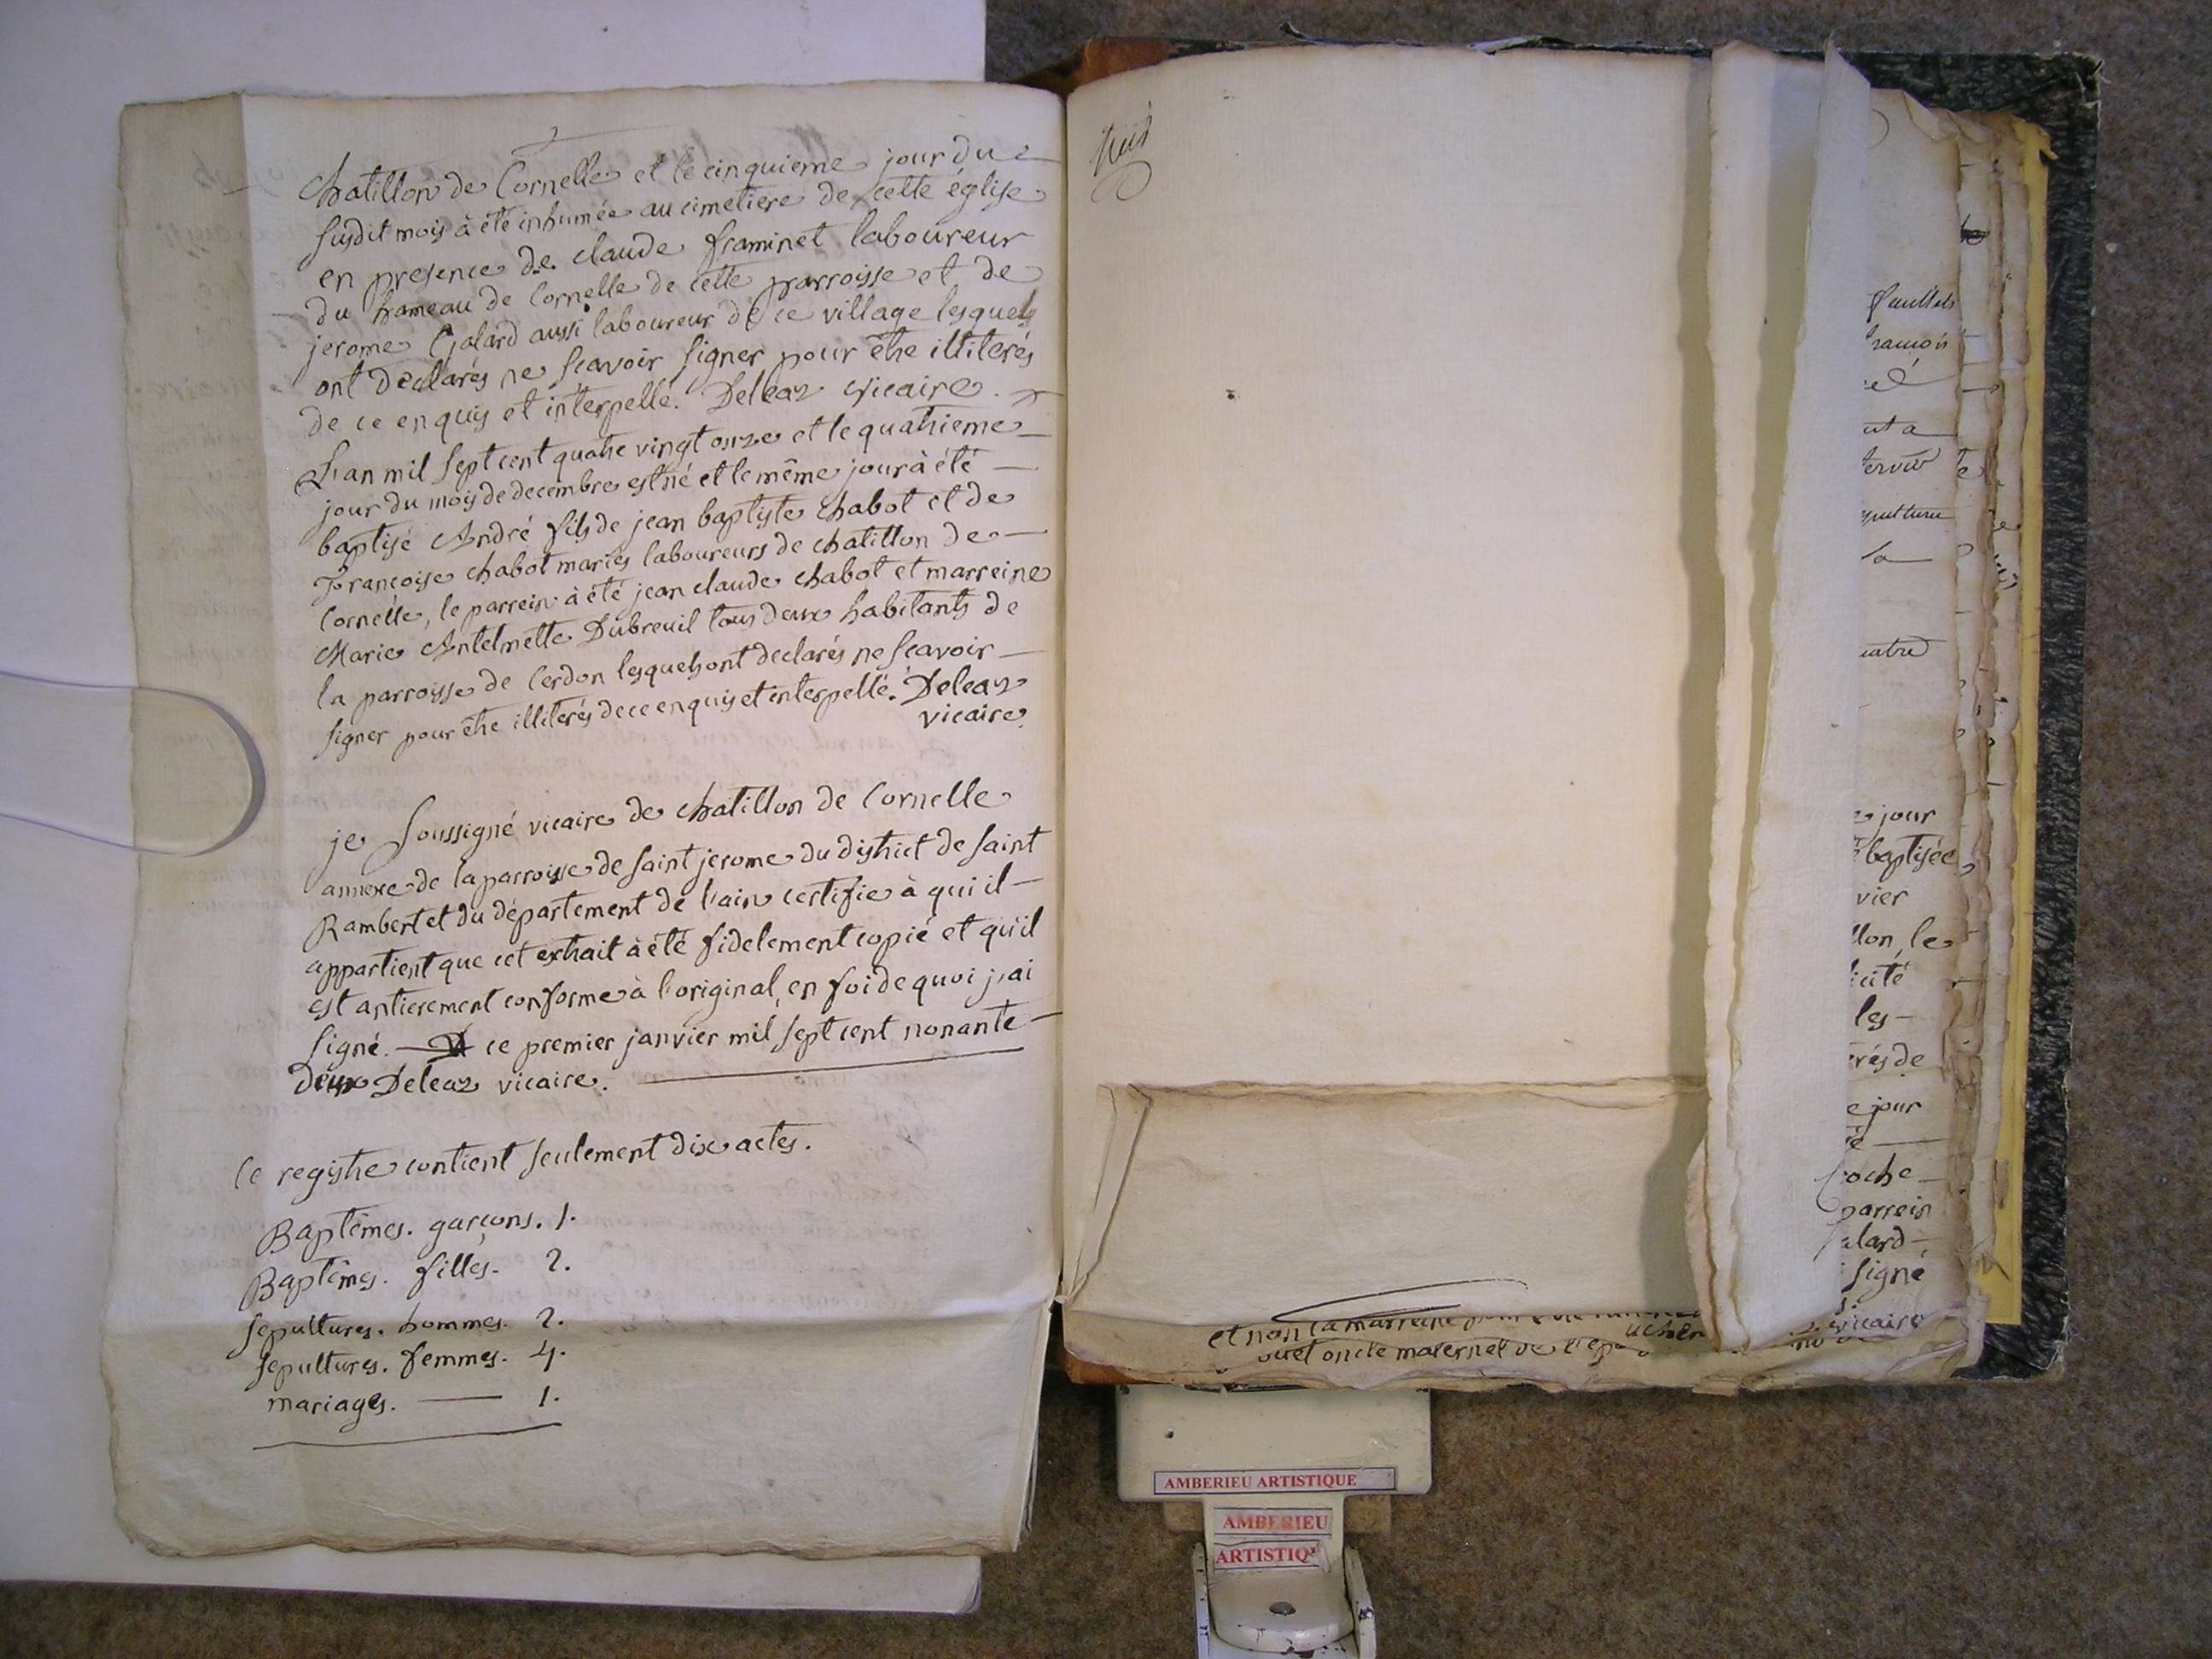 chatillon de Cornelle et le cinquieme jour du
susdit mois à été inhumée au cimetiere de cette église
en presence de claude framinet laboureur
du hameau de Cornelle de cette parroisse et de
jerome Galard aussi laboureur de ce village lesquels
ont déclarés ne scavoir signer pour être illiterés
de ce enquis et interpellé. Deleaz vicaire.
L'an mil sept cent quatre vingt onze et le quatrieme
jour du mois de decembre est né et le même jour à été
baptisé André fils de jean baptiste chabot et de
Françoise chabot mariés laboureurs de chatillon de
Cornelle, le parrein à été jean claude chabot et marreine
Marie Antelmette Dubreuil tous deux habitants de
la parroisse de Cerdon lesquels ont declarés ne scavoir
signer pour être illiterés de ce enquis et interpellé. Deleaz
vicaire.
je soussigné vicaire de chatillon de Cornelle
annexe de la parroisse de saint jerome du district de saint
Rambert et du département de l'ain certifie à qui il
appartient que cet extrait à été fidelement copié et qu'il
est antierement conforme à l'original, en foi de quoi j'ai
signé. ce premier janvier mil sept cent nonante
deux Deleaz vicaire.
Ce registre contient seulement dix actes.
Baptêmes. garçons. 1.
Baptêmes. filles. 2.
sepultures. hommes. 2.
sepultures. femmes. 4.
mariages. 1.
jour
baptisée
vier
llon, le
les
rés de
e jour
oche
parrein
alard
signé
vicaire
et non la marreine
oncle maternel de
AMBERIEU ARTISTIQUE
AMBERIEU
ARTISTIQ